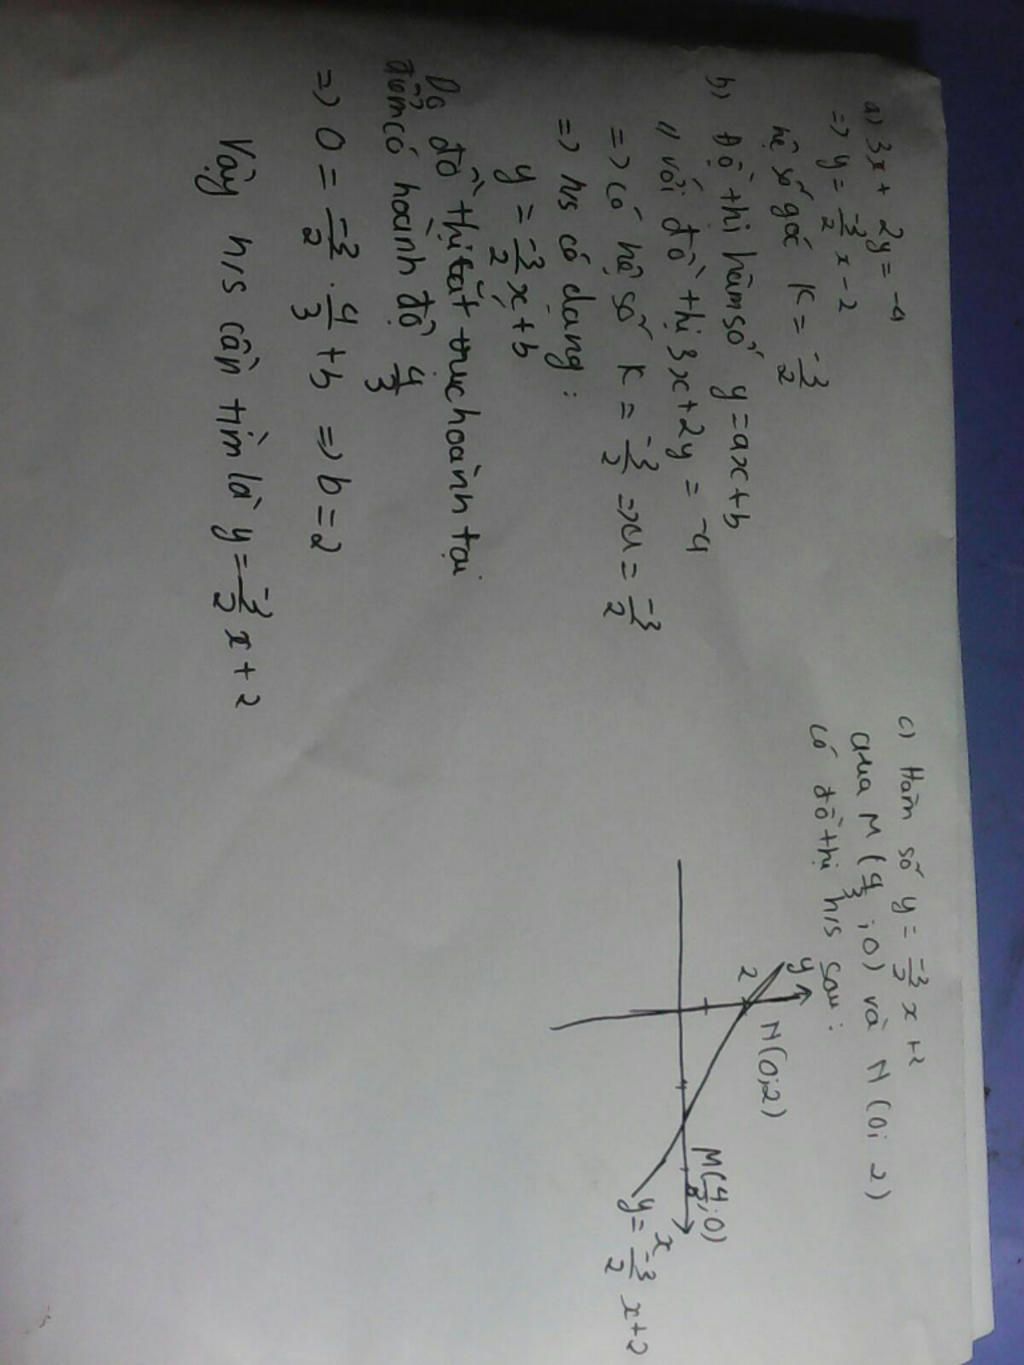 a) 3x + 2y = -4
=> y = -3/2 x - 2
hệ số góc K = -3/2
b) Đồ thị hàm số y = ax + b
// với đồ thị 3x + 2y = -4
=> có hệ số K = -3/2 => a = -3/2
=> h/s có dạng :
y = -3/2 x + b
Do đồ thị cắt trục hoành tại
điểm có hoành độ 4/3
=> 0 = -3/2 . 4/3 + b => b = 2
Vậy h/s cần tìm là y = -3/2 x + 2
c) Hàm số y = -3/2 x + 2
qua M (4/3 ; 0) và N (0; 2)
có đồ thị h/s sau :
y
2
N(0;2)
M(4/3; 0)
x
y = -3/2 x + 2